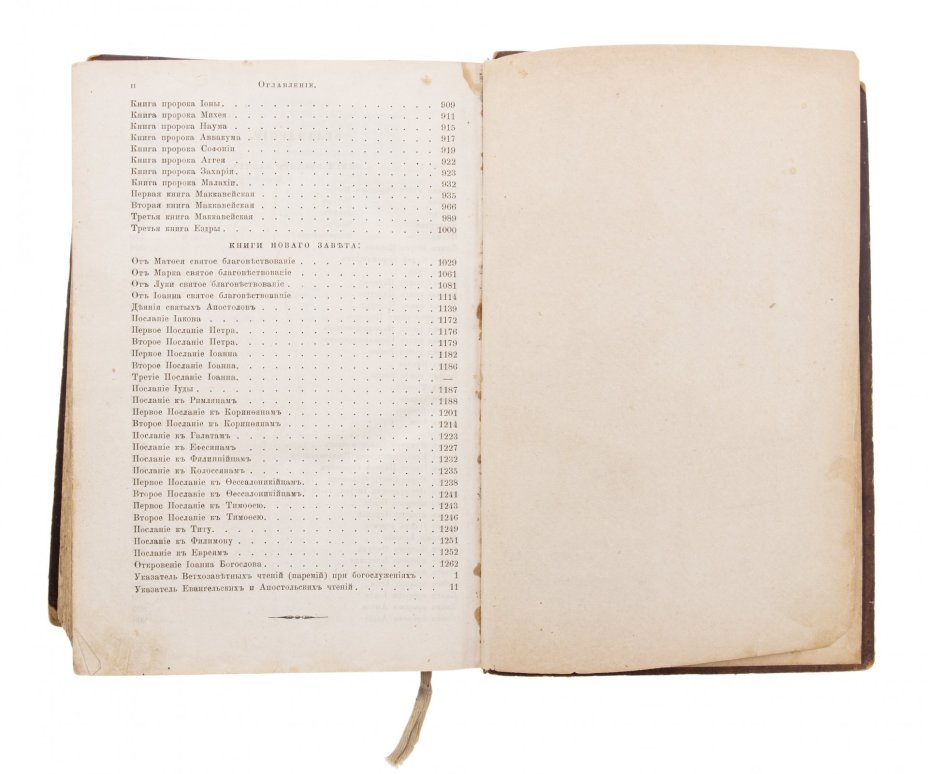 II Оглавленіе.
Книга пророка Іоны. 909
Книга пророка Михея 911
Книга пророка Наума 915
Книга пророка Аввакума 917
Книга пророка Софоніи 919
Книга пророка Аггея 922
Книга пророка Захаріи. 923
Книга пророка Малахіи. 932
Первая книга Маккавейская 935
Вторая книга Маккавейская 966
Третья книга Маккавейская 989
Третья книга Ездры. 1000
КНИГИ НОВАГО ЗАВѢТА:
Отъ Матѳея святое благовѣствованіе 1029
Отъ Марка святое благовѣствованіе 1061
Отъ Луки святое благовѣствованіе 1081
Отъ Іоанна святое благовѣствованіе 1114
Дѣянія святыхъ Апостоловъ 1139
Посланіе Іакова 1172
Первое Посланіе Петра. 1176
Второе Посланіе Петра. 1179
Первое Посланіе Іоанна 1182
Второе Посланіе Іоанна. 1186
Третіе Посланіе Іоанна. —
Посланіе Іуды 1187
Посланіе къ Римлянамъ 1188
Первое Посланіе къ Коринѳянамъ 1201
Второе Посланіе къ Коринѳянамъ 1214
Посланіе къ Галатамъ 1223
Посланіе къ Ефесянамъ 1227
Посланіе къ Филиппійцамъ 1232
Посланіе къ Колоссянамъ 1235
Первое Посланіе къ Ѳессалоникійцамъ 1238
Второе Посланіе къ Ѳессалоникійцамъ. 1241
Первое Посланіе къ Тимоѳею. 1243
Второе Посланіе къ Тимоѳею. 1246
Посланіе къ Титу. 1249
Посланіе къ Филимону 1251
Посланіе къ Евреямъ 1252
Откровеніе Іоанна Богослова 1262
Указатель Ветхозавѣтныхъ чтеній (паремій) при богослуженіяхъ 1
Указатель Евангельскихъ и Апостольскихъ чтеній 11